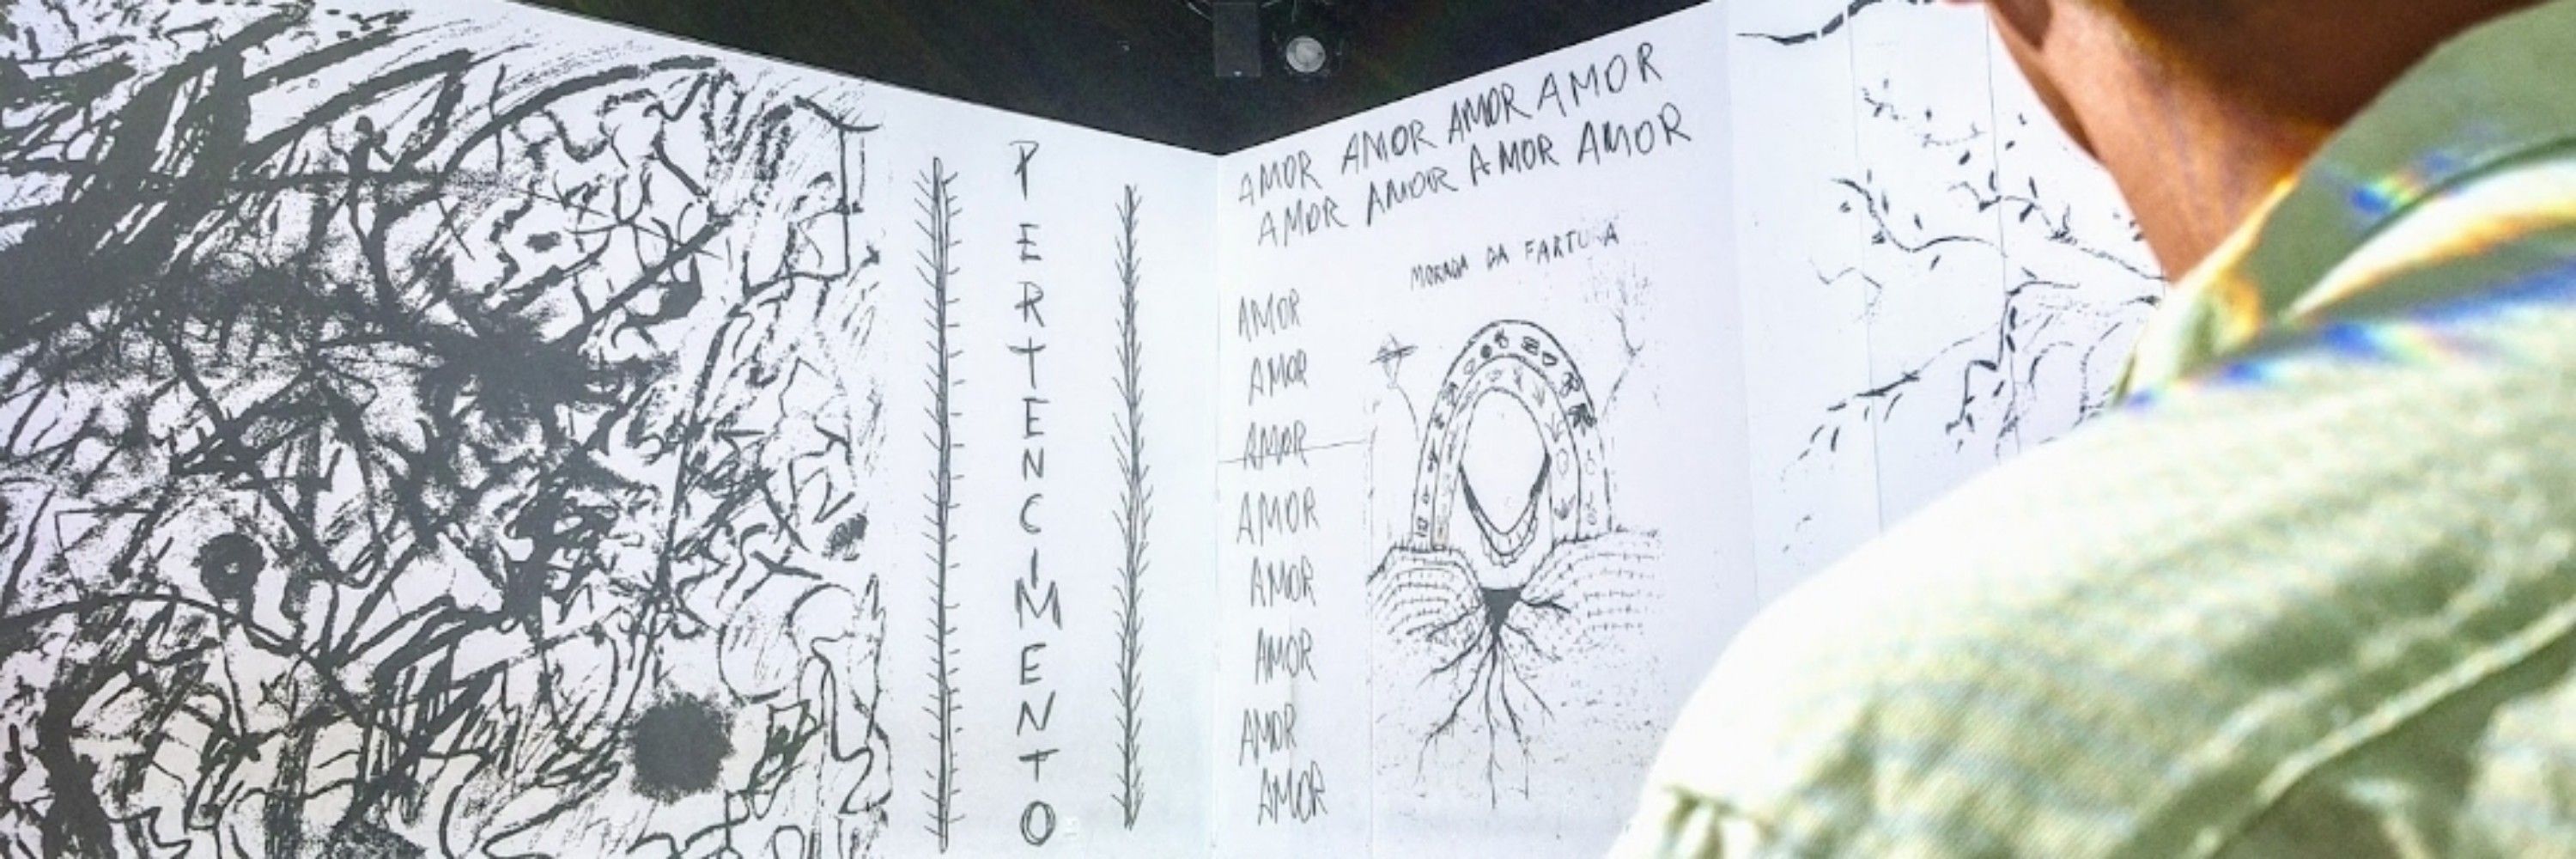 PERTENCIMENTO
AMOR AMOR AMOR AMOR
AMOR AMOR AMOR AMOR
MORADA DA FARTURA
AMOR
AMOR
AMOR
AMOR
AMOR
AMOR
AMOR
AMOR